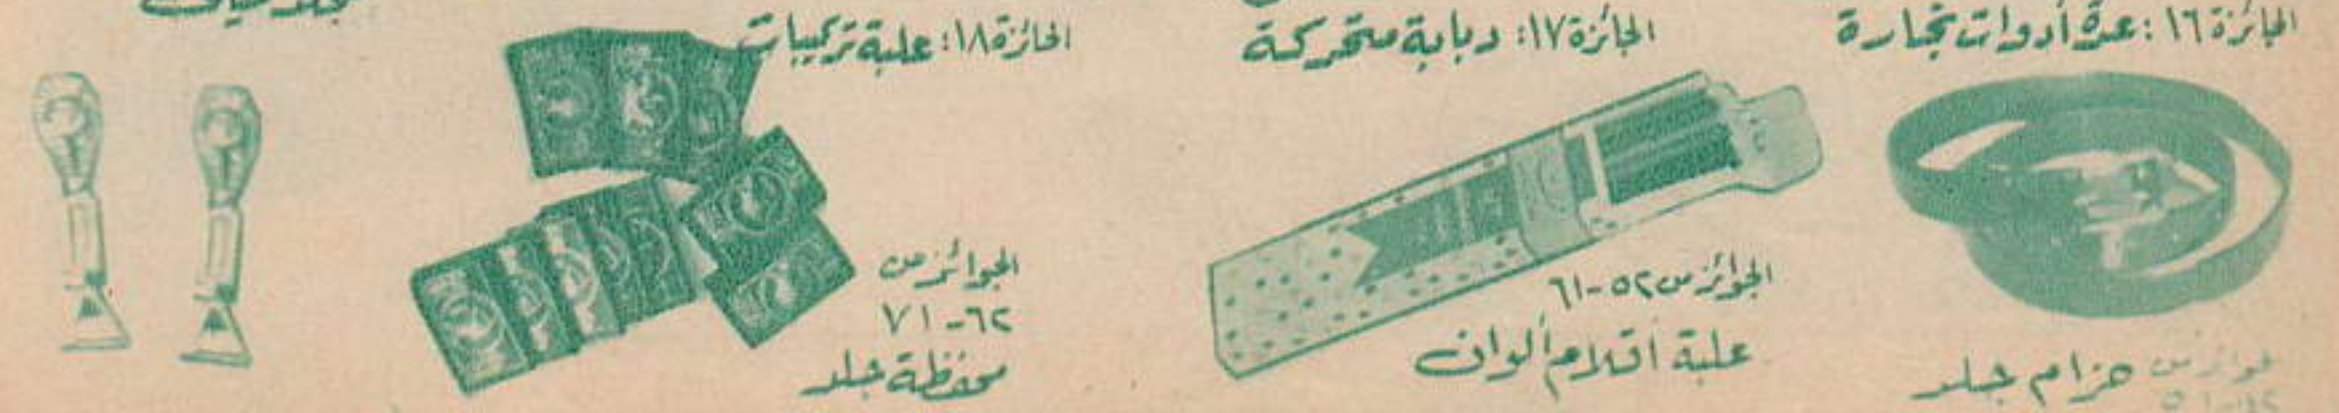 الجائزة ١٦: عدة أدوات نجارة
الجائزة ١٧: دبابة متحركة
الجائزة ١٨: علبة تركيبات
حزام جلد
الجوائز من ٥٢-٦١
علبة أقلام ألوان
الجوائز من
٦٢-٧١
محفظة جلد